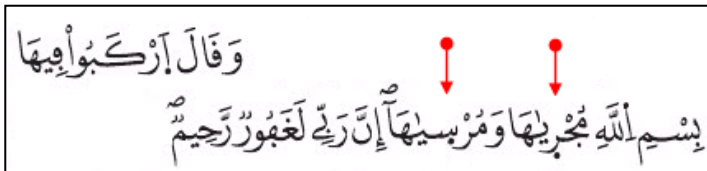 وَقَالَ اَ۪رْكَبُواْ فِيهَا
بِسْمِ اِ۬للَّهِ مُجْر۪يٰهَا وَمُرْس۪يٰهَآۖ إِنَّ رَبِّے لَغَفُورٞ رَّحِيمٞۖ